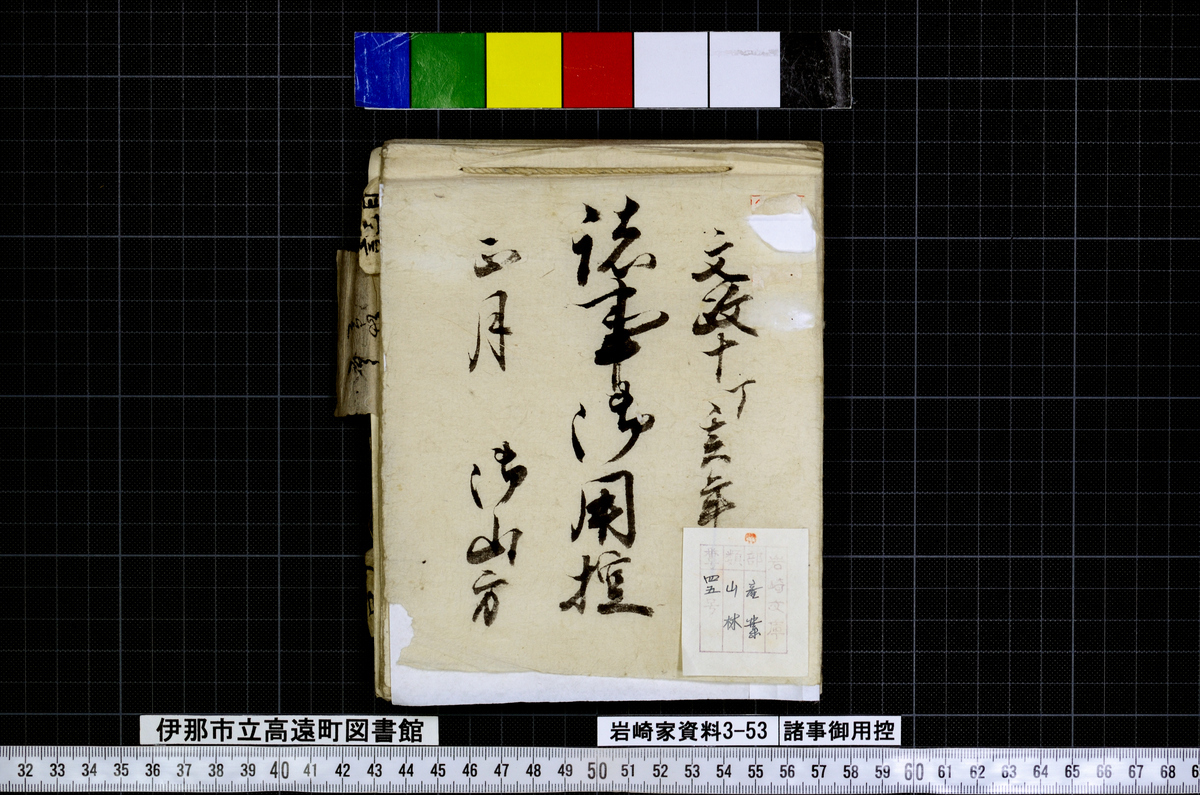 文政十丁亥年
諸事御用控
正月　御山方
岩崎文庫
部 産業
類 山林
番 四五号
伊那市立高遠町図書館
岩崎家資料3-53 諸事御用控
32 33 34 35 36 37 38 39 40 41 42 43 44 45 46 47 48 49 50 51 52 53 54 55 56 57 58 59 60 61 62 63 64 65 66 67 68